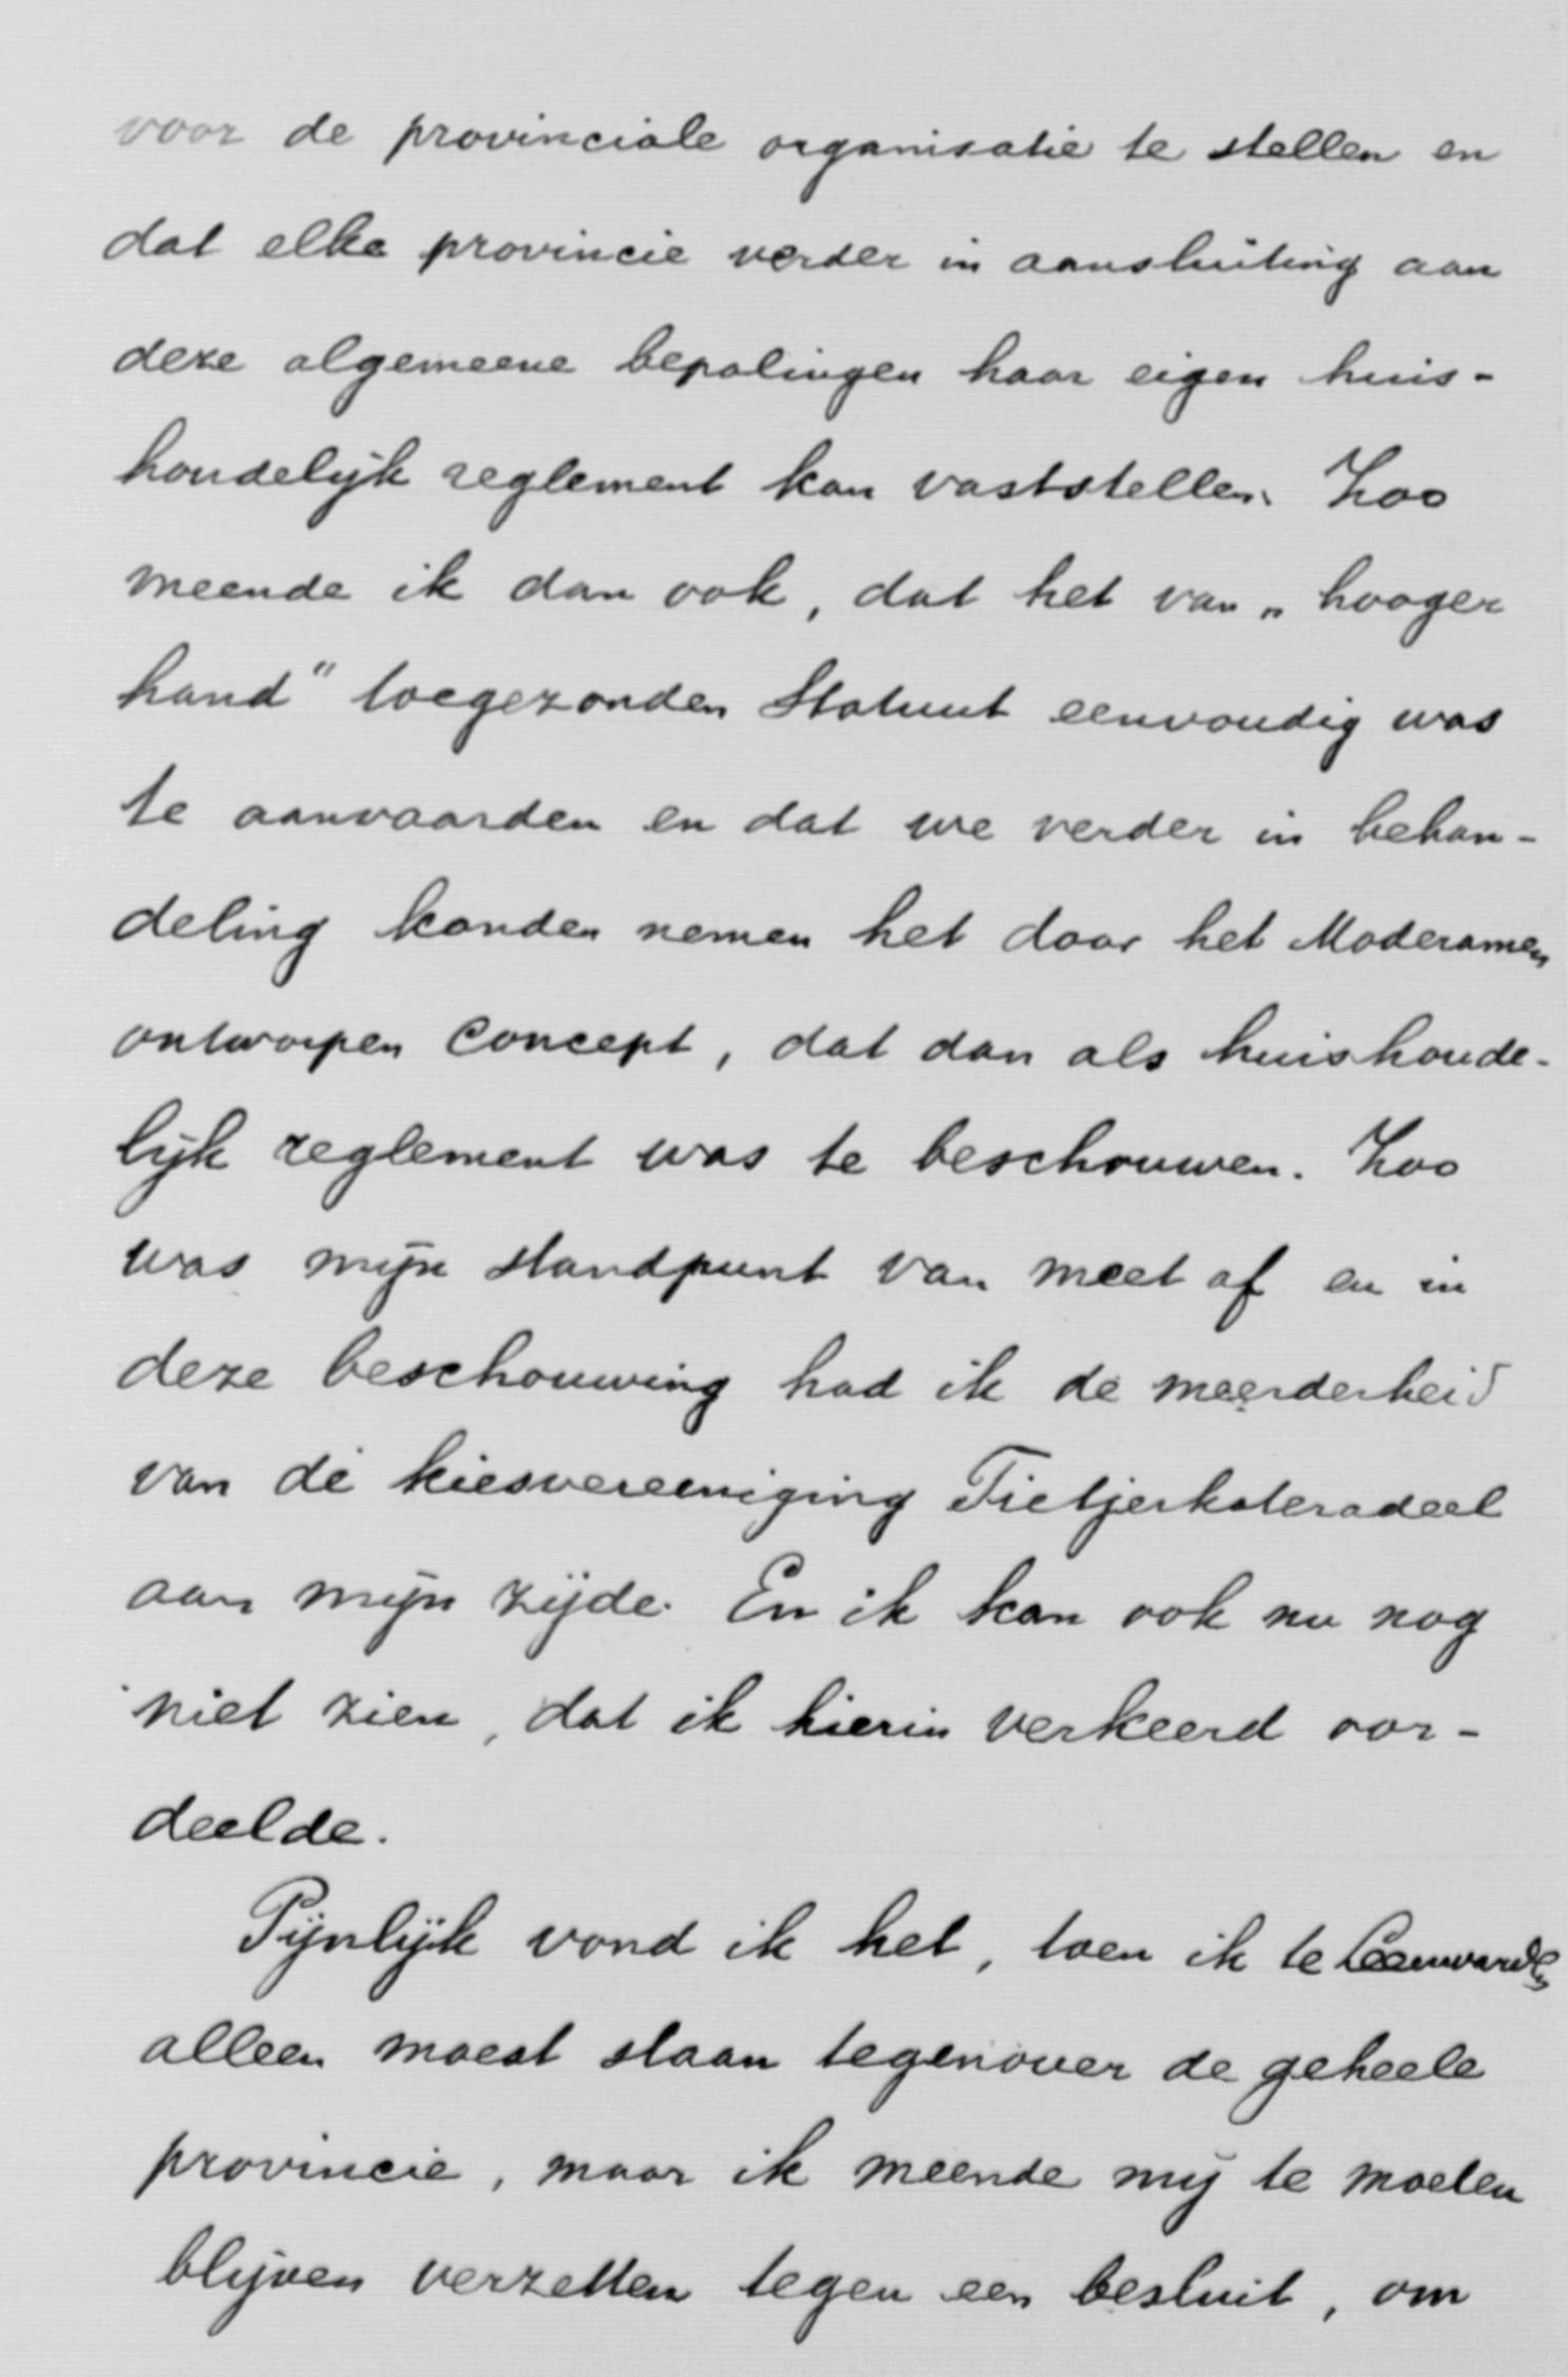 voor de provinciale organisatie te stellen en
dat elke provincie verder in aansluiting aan
deze algemeene bepalingen haar eigen huis-
houdelijk reglement kan vaststellen. Zoo
meende ik dan ook, dat het van „hooger
hand" toegezonden Statuut eenvoudig was
te aanvaarden en dat we verder in behan-
deling konden nemen het door het Moderamen
ontworpen Concept, dat dan als huishoude-
lijk reglement was te beschouwen. Zoo
was mijn standpunt van meet af en in
deze beschouwing had ik de meerderheid
van de kiesvereeniging Tietjerksteradeel
aan mijn zijde. En ik kan ook nu nog
niet zien, dat ik hierin verkeerd oor-
deelde.
Pijnlijk vond ik het, toen ik te Leeuwarden
alleen moest staan tegenover de geheele
provincie, maar ik meende mij te moeten
blijven verzetten tegen een besluit, om